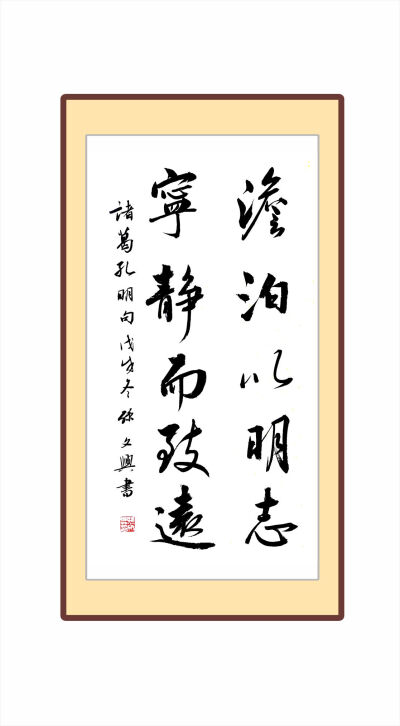 澹泊以明志
寧静而致遠
諸葛孔明句戊戌冬文興書